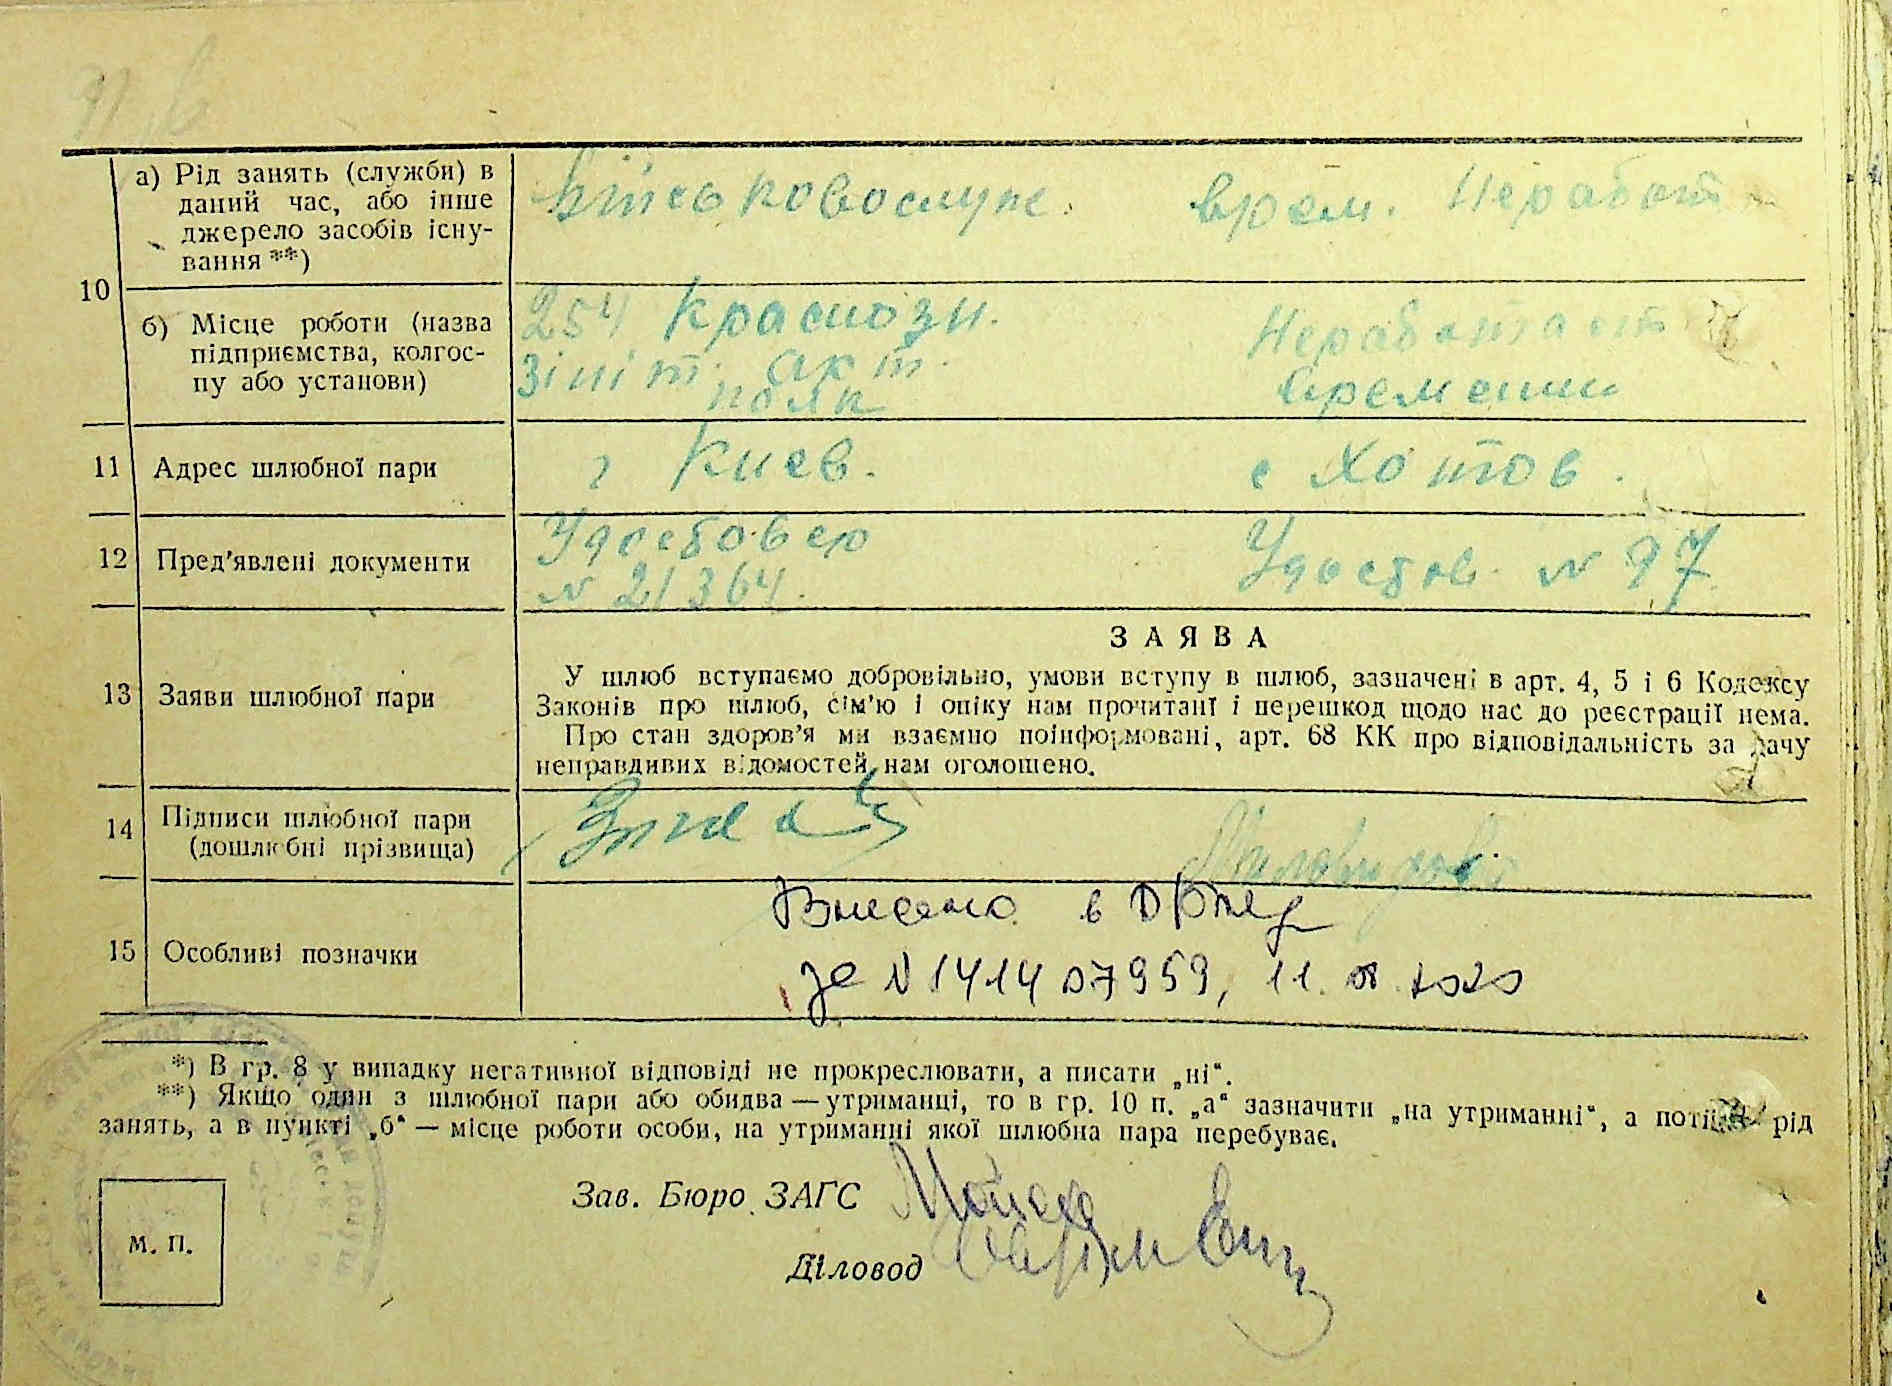 а) Рід занять (службн) в
даний час, або інше
джерело засобів існу-
вання **)
Військовослуж. врем. Неработ
10
б) Місце роботи (назва
підприємства, колгос-
пу або установи)
254 Краснозн. Неработает
Зініт. акт. времени
полк
11 Адрес шлюбної пари г Киев. с Хотов.
12 Пред'явлені документи
Удостовер Удостов. N 97
N 21364.
13 Заяви шлюбної пари
ЗАЯВА
У шлюб вступаємо добровільно, умови вступу в шлюб, зазначені в арт. 4, 5 і 6 Кодексу
Законів про шлюб, сім'ю і опіку нам прочитані і перешкод щодо нас до реєстрації нема.
Про стан здоров'я ми взаємно поінформовані, арт. 68 КК про відповідальність за дачу
неправдивих відомостей нам оголошено.
14 Підписи шлюбної пари
(дошлюбні прізвища)
15 Особливі позначки
Внесено в
за N 141407959, 11. 2020
*) В гр. 8 у випадку негативної відповіді не прокреслювати, а писати „ні“.
**) Якщо один з шлюбної пари або обидва — утриманці, то в гр. 10 п. „а“ зазначити „на утриманні“, а потім рід
занять, а в пункті „б“ — місце роботи особи, на утриманні якої шлюбна пара перебуває.
Зав. Бюро ЗАГС
Діловод
М. П.